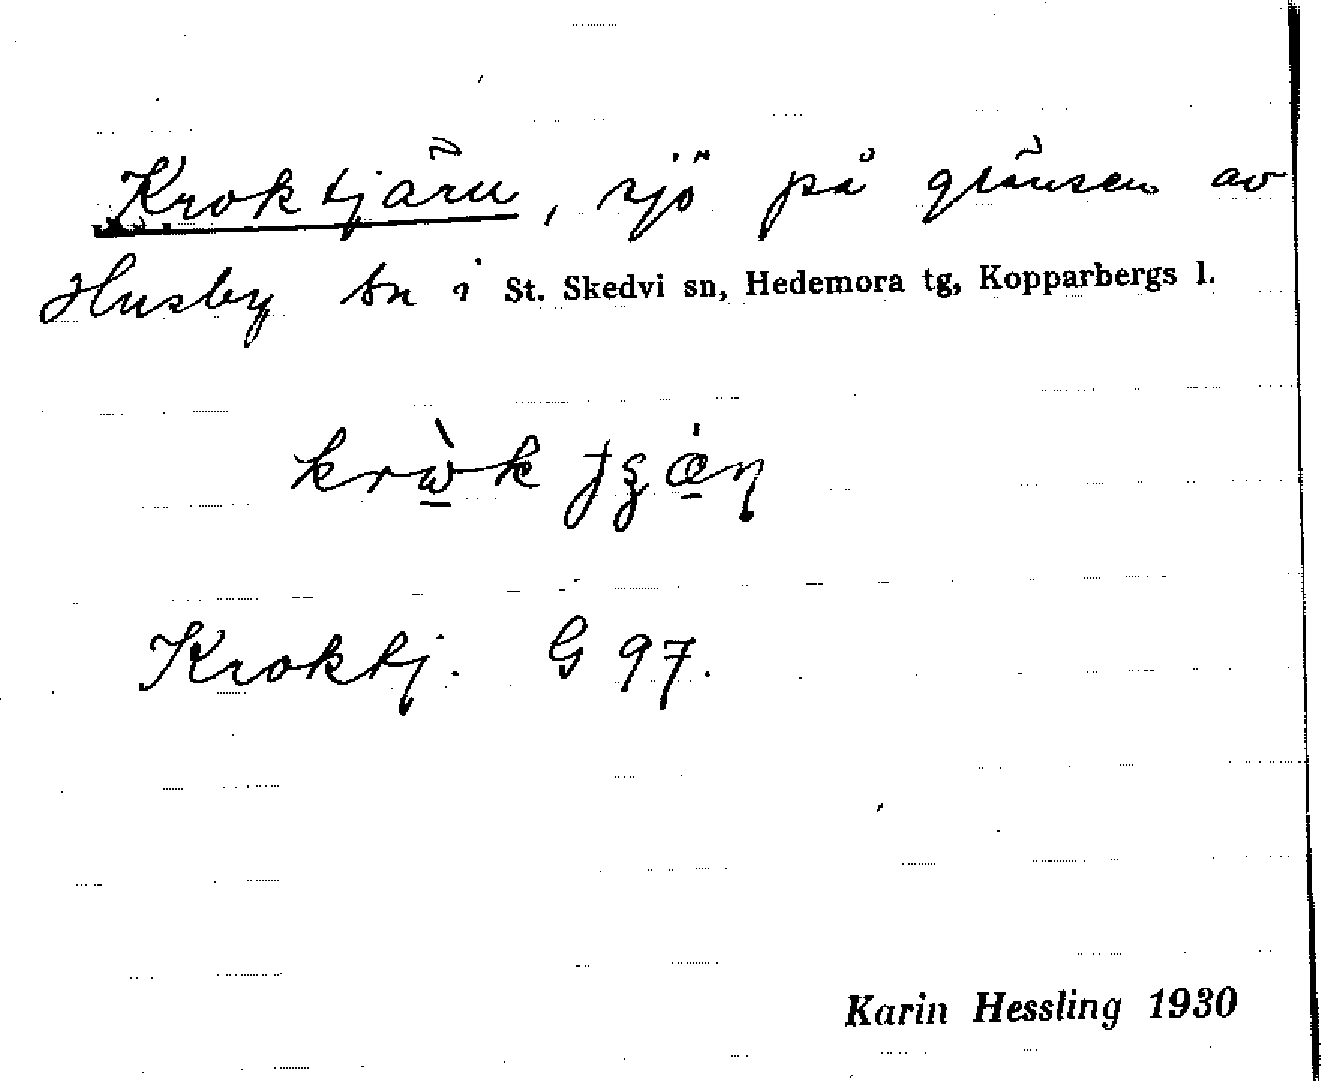 Kroktjärn, sjö på gränsen av
Husby sn i St. Skedvi sn, Hedemora tg, Kopparbergs l.
Kroktj. G 97.
Karin Hessling 1930